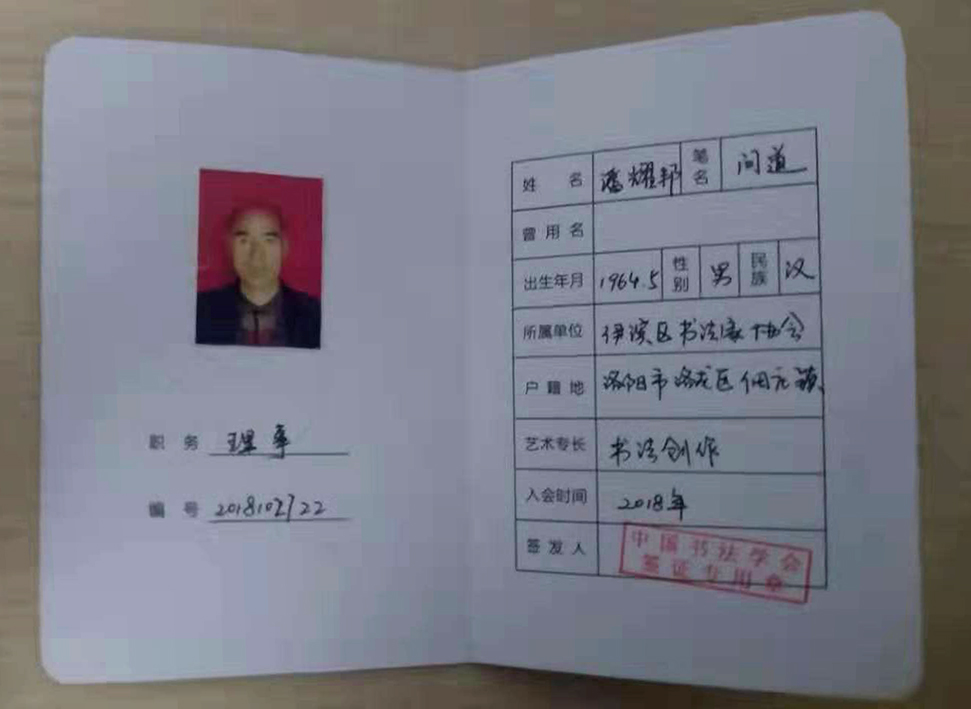 职 务 理事
编 号 2018102722
姓 名 潘耀邦 笔名 问道
曾用名
出生年月 1964.5 性别 男 民族 汉
所属单位 伊滨区书法家协会
户籍地 洛阳市洛龙区佃庄镇
艺术专长 书法创作
入会时间 2018年
签发人
中国书法学会
签证专用章